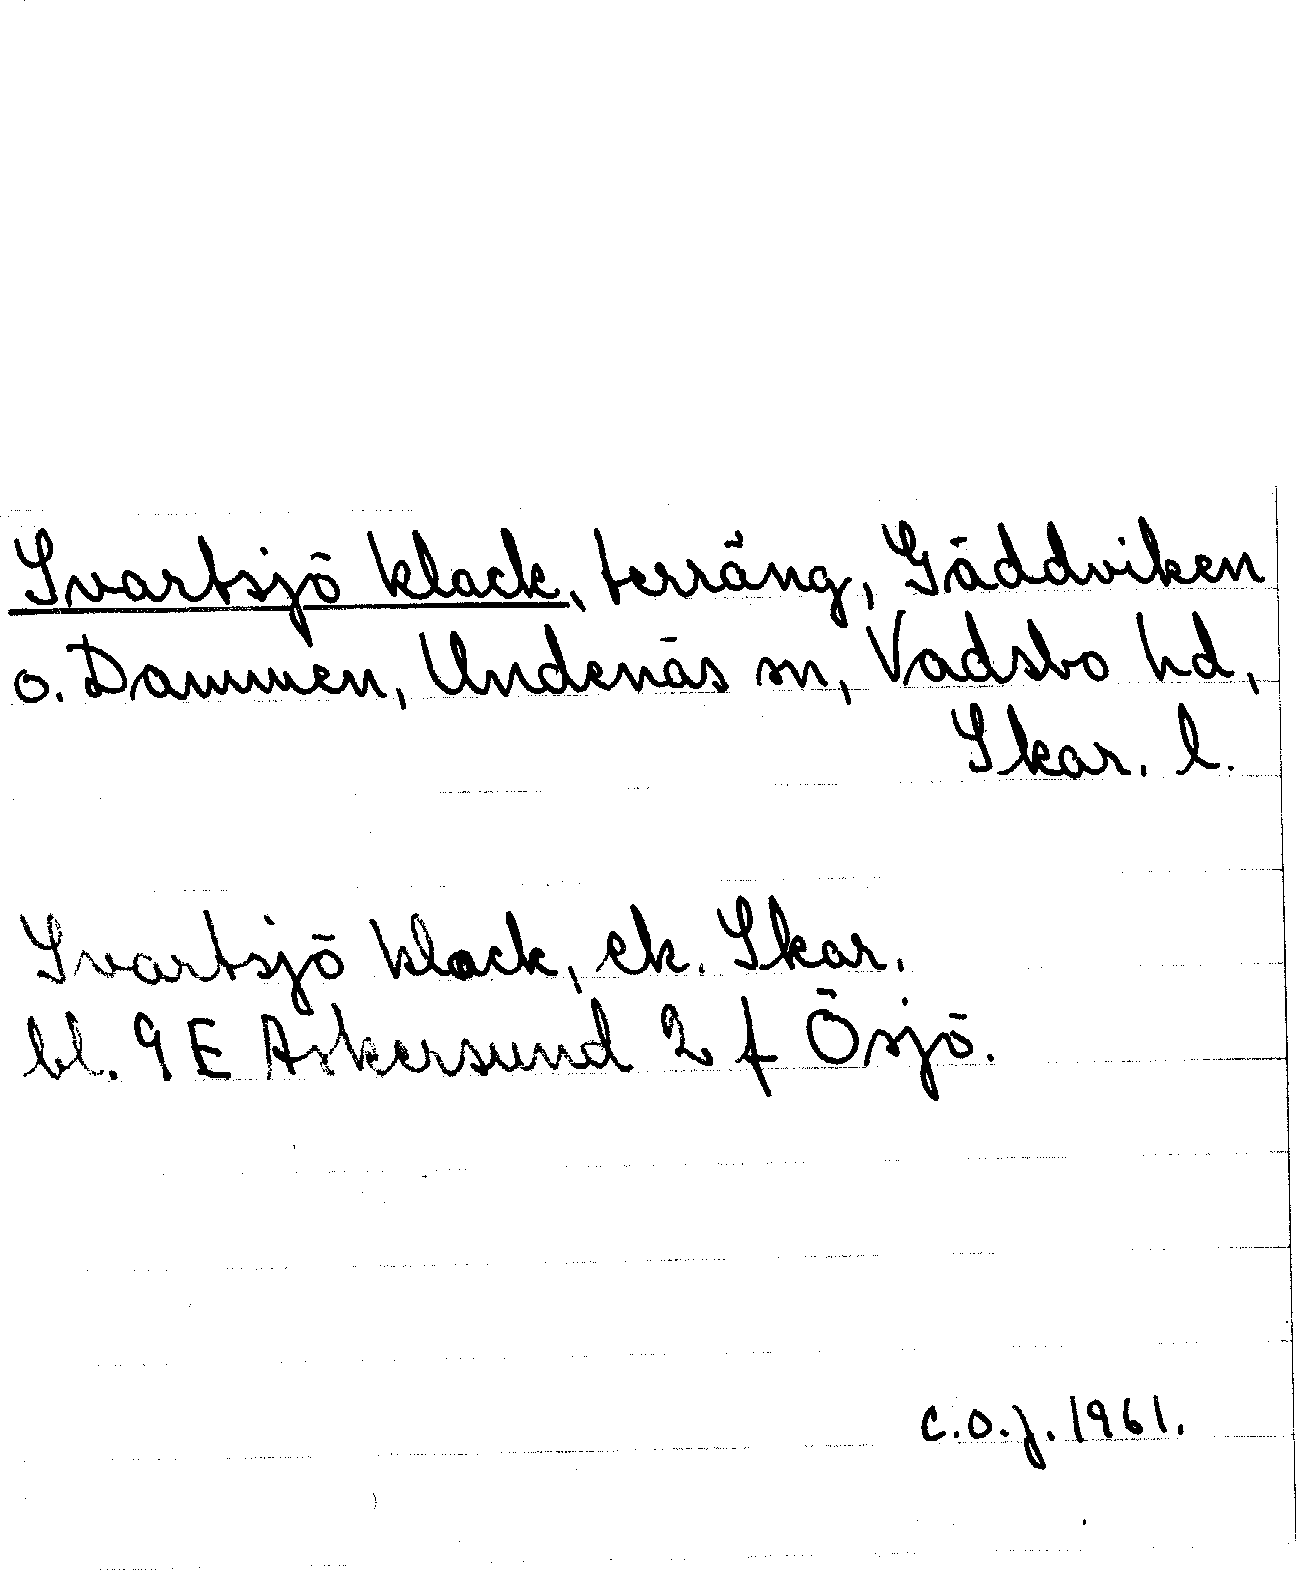 Svartsjö klack, terräng, Gäddviken
o. Dammen, Undenäs sn, Vadsbo hd,
Skar. l.
Svartsjö klack, ek. Skar.
bl. 9 E Askersund 2 f Ösjö.
C.O.J. 1961.